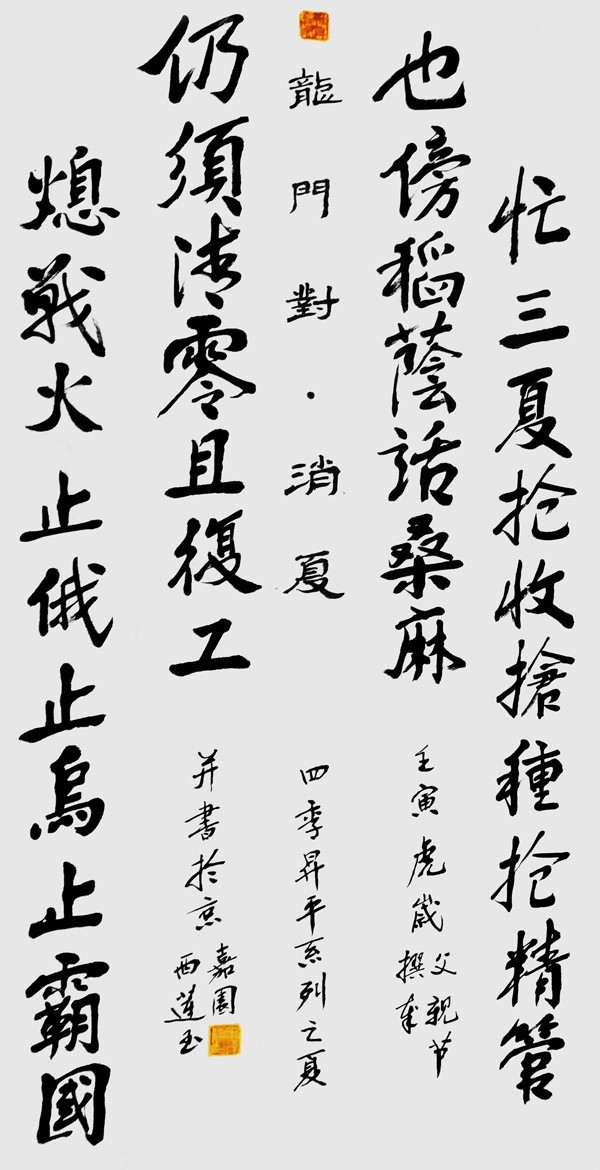 忙三夏抢收搶種抢精管
也傍稻蔭話桑麻
龍門對·消夏
熄戰火止俄止烏止霸國
仍須清零且復工
壬寅虎歲
父親节
撰
四季昇平系列之夏
并書於京
西蓮玉
嘉園